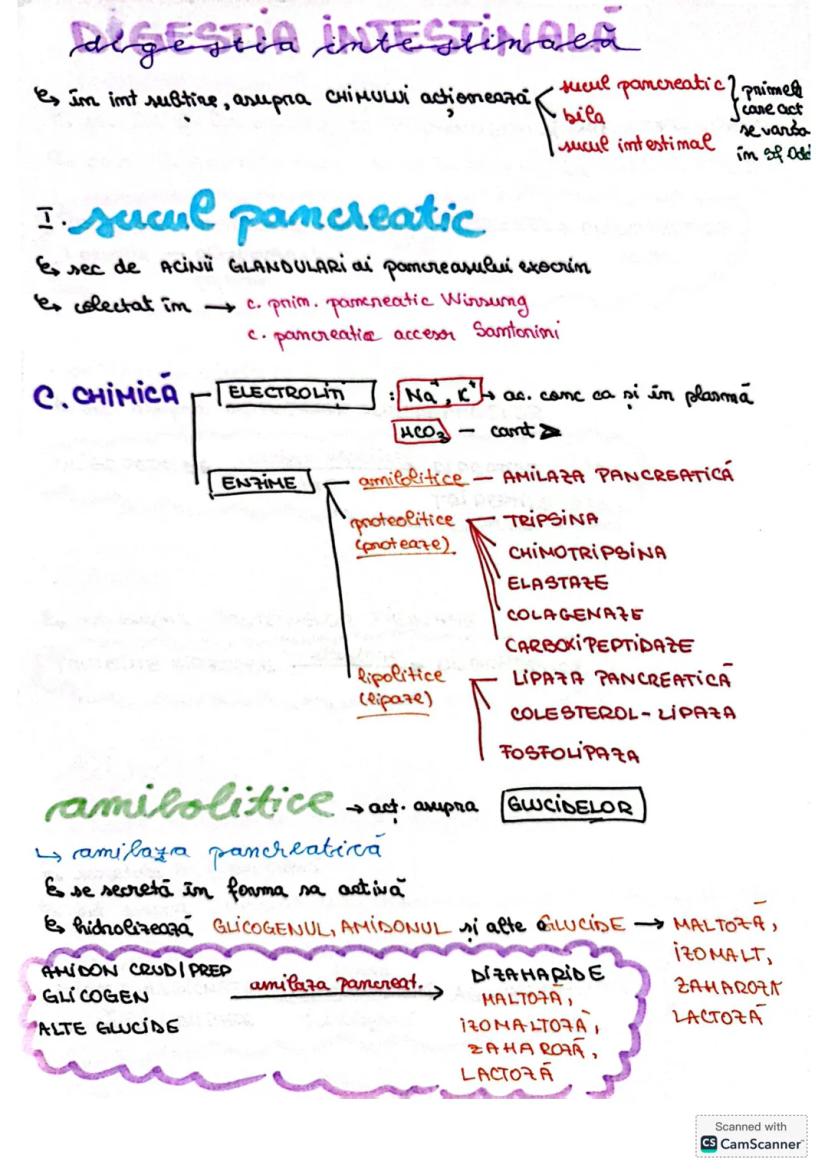 DIGESTIA INTESTINALĂ
digestia intestinală
în int subțire, asupra CHIMULUI acționează
sucul pancreatic
bila
sucul intestinal
primele
care act
se varsă
în Sf Odd
I. sucul pancreatic
sec de ACINII GLANDULARI ai pancreasului exocrin
colectat în → c. prim. pancreatic Winsung
c. pancreatic accesor Santorini
C. CHIMICĂ
ELECTROLIȚI : Na⁺, K⁺ → ac. conc ca și în plasmă
HCO3 – cant >
ENZIME
amilolitice – AMILAZA PANCREATICĂ
proteolitice
(proteaze)
TRIPSINA
CHIMOTRIPSINA
ELASTAZE
COLAGENAZE
CARBOXIPEPTIDAZE
lipolitice
(lipaze)
LIPAZA PANCREATICĂ
COLESTEROL-LIPAZA
FOSFOLIPAZA
amilolitice → acț. asupra GLUCIDELOR
↳ amilaza pancreatică
se secretă în forma sa activă
hidrolizează GLICOGENUL, AMIDONUL și alte GLUCIDE → MALTOZĂ,
IZOMALT,
ZAHAROZA
LACTOZĂ
AMIDON CRUD/PREP
GLICOGEN
ALTE GLUCIDE
amilaza pancreat.
DIZAHARIDE
MALTOZĂ,
IZOMALTOZĂ,
ZAHAROZĂ,
LACTOZĂ
Scanned with
CS CamScanner